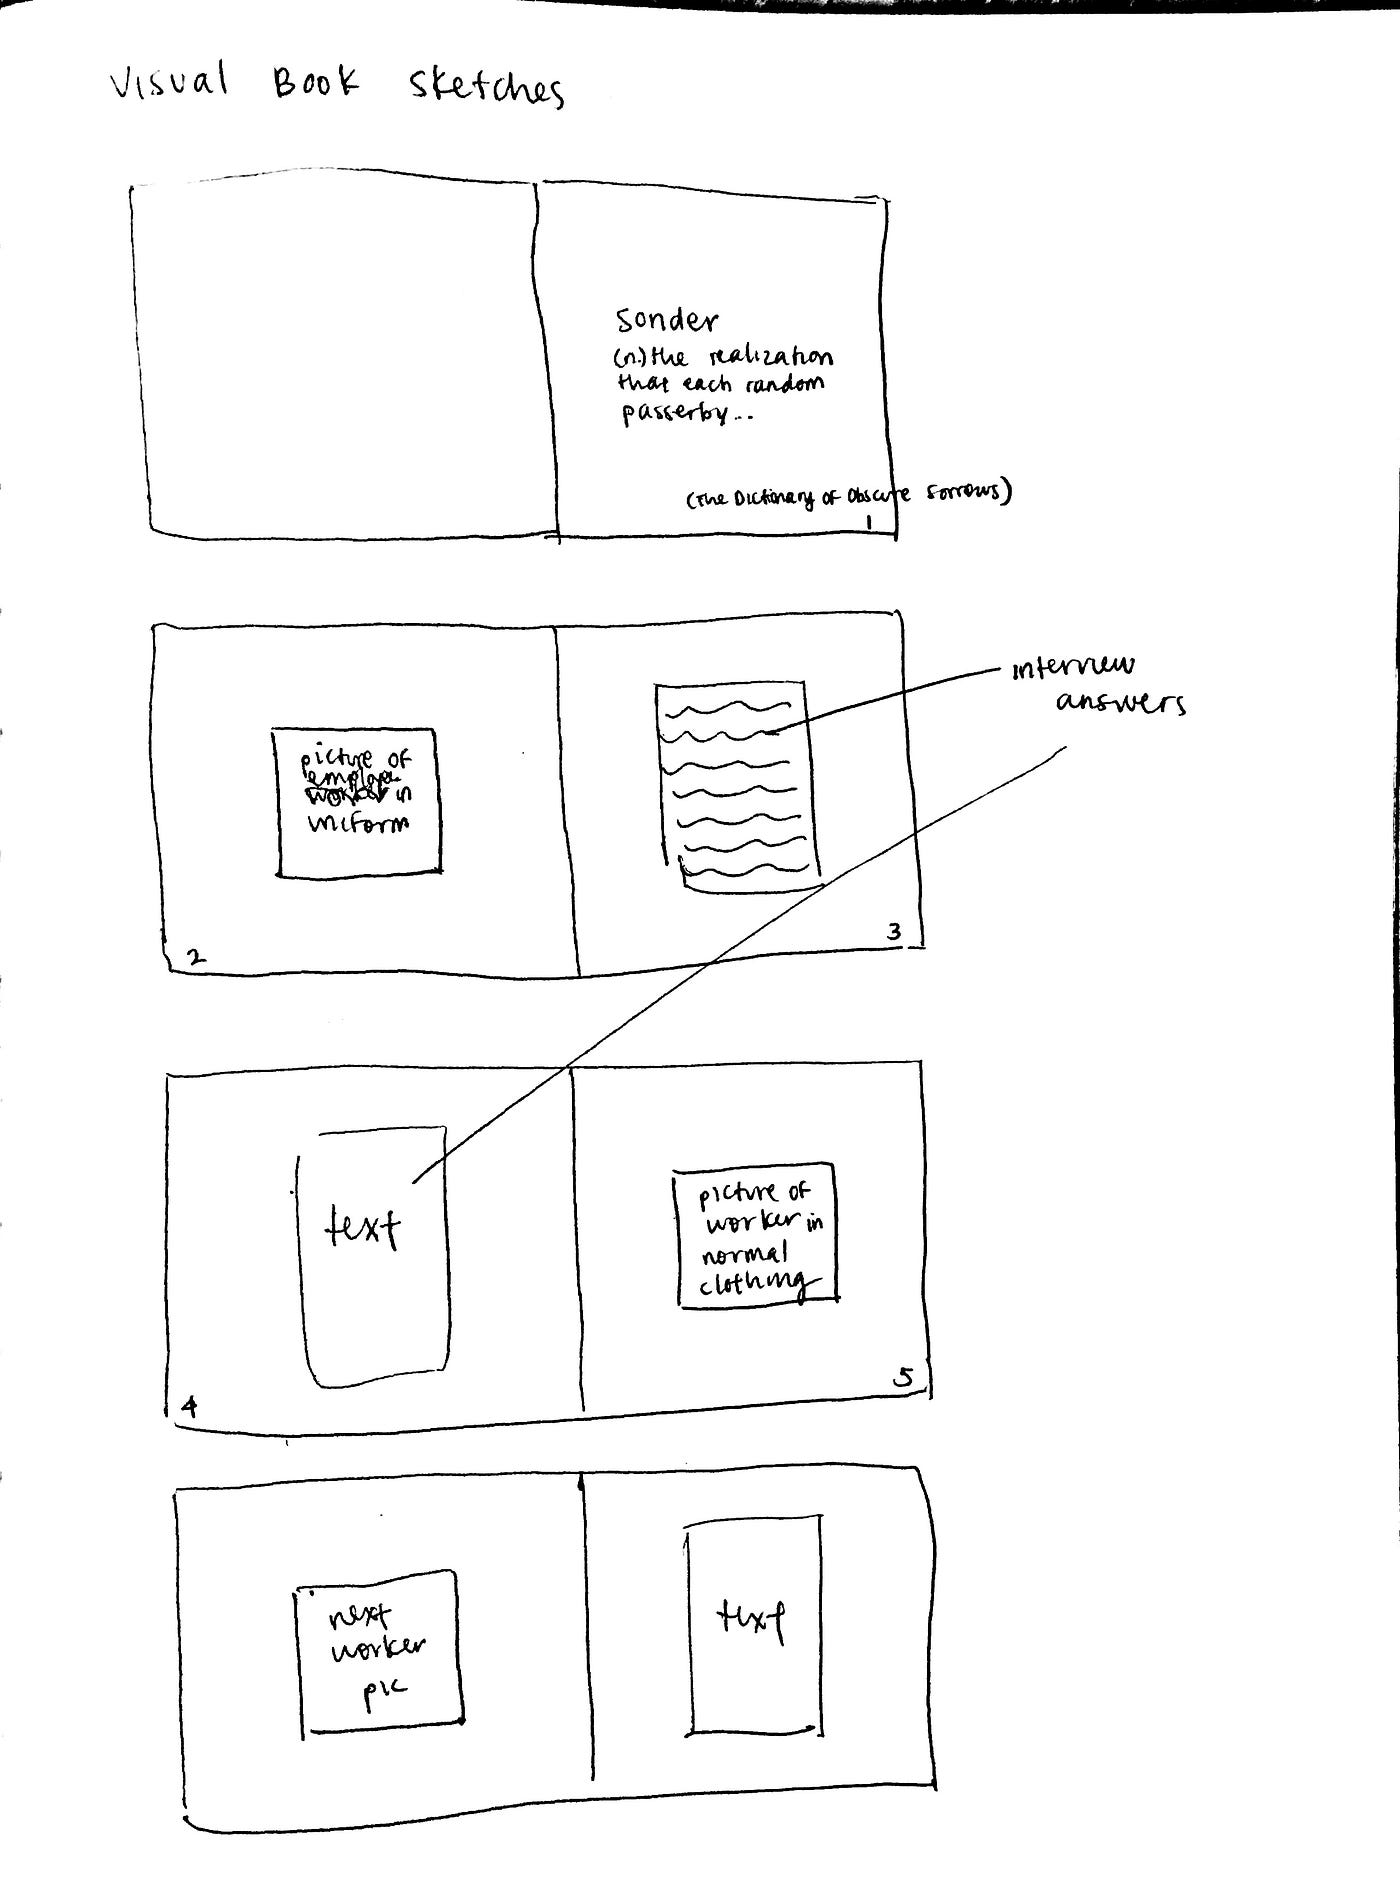 Visual Book Sketches
Sonder
(n.) the realization
that each random
passerby...
(The Dictionary of Obscure Sorrows)
1
picture of
employee
worker in
uniform
2
interview
answers
3
text
4
picture of
worker in
normal
clothing
5
next
worker
pic
text